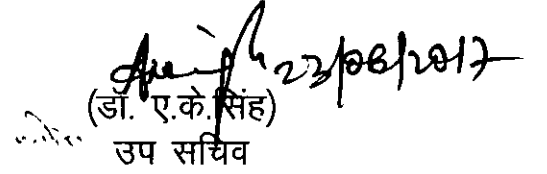 23/06/2017
(डॉ. ए.के. सिंह)
उप सचिव